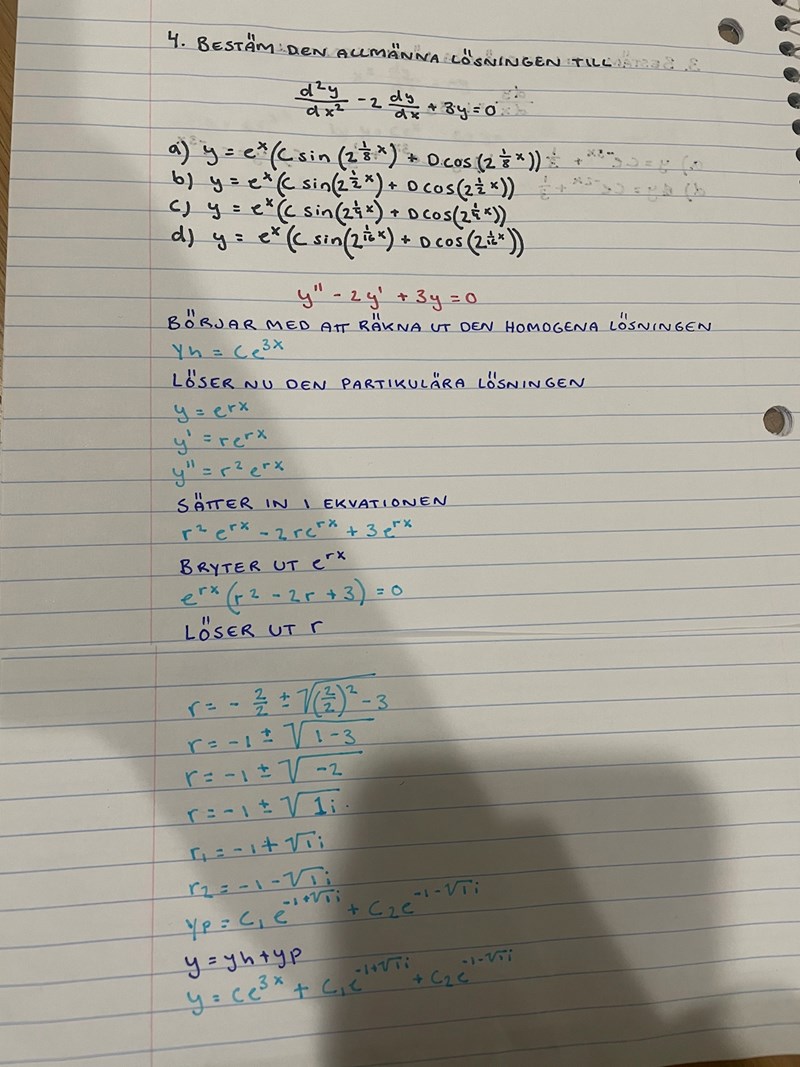 4. BESTÄM DEN ALLMÄNNA LÖSNINGEN TILL
d²y/dx² - 2 dy/dx + 3y = 0
a) y = eˣ(C sin(2^(1/8) x) + D cos(2^(1/8) x))
b) y = eˣ(C sin(2^(1/2) x) + D cos(2^(1/2) x))
c) y = eˣ(C sin(2^(1/4) x) + D cos(2^(1/4) x))
d) y = eˣ(C sin(2^(1/16) x) + D cos(2^(1/16) x))
y'' - 2y' + 3y = 0
BÖRJAR MED ATT RÄKNA UT DEN HOMOGENA LÖSNINGEN
Yh = Ce^(3x)
LÖSER NU DEN PARTIKULÄRA LÖSNINGEN
y = e^(rx)
y' = re^(rx)
y'' = r²e^(rx)
SÄTTER IN I EKVATIONEN
r²e^(rx) - 2re^(rx) + 3e^(rx)
BRYTER UT e^(rx)
e^(rx)(r² - 2r + 3) = 0
LÖSER UT r
r = - 2/2 ± √((2/2)² - 3)
r = -1 ± √(1-3)
r = -1 ± √(-2)
r = -1 ± √(1i).
r₁ = -1 + √1i
r₂ = -1 - √1i
Yp = C₁e^(-1+√1i) + C₂e^(-1-√1i)
y = yh + yp
y = Ce^(3x) + C₁e^(-1+√1i) + C₂e^(-1-√1i)